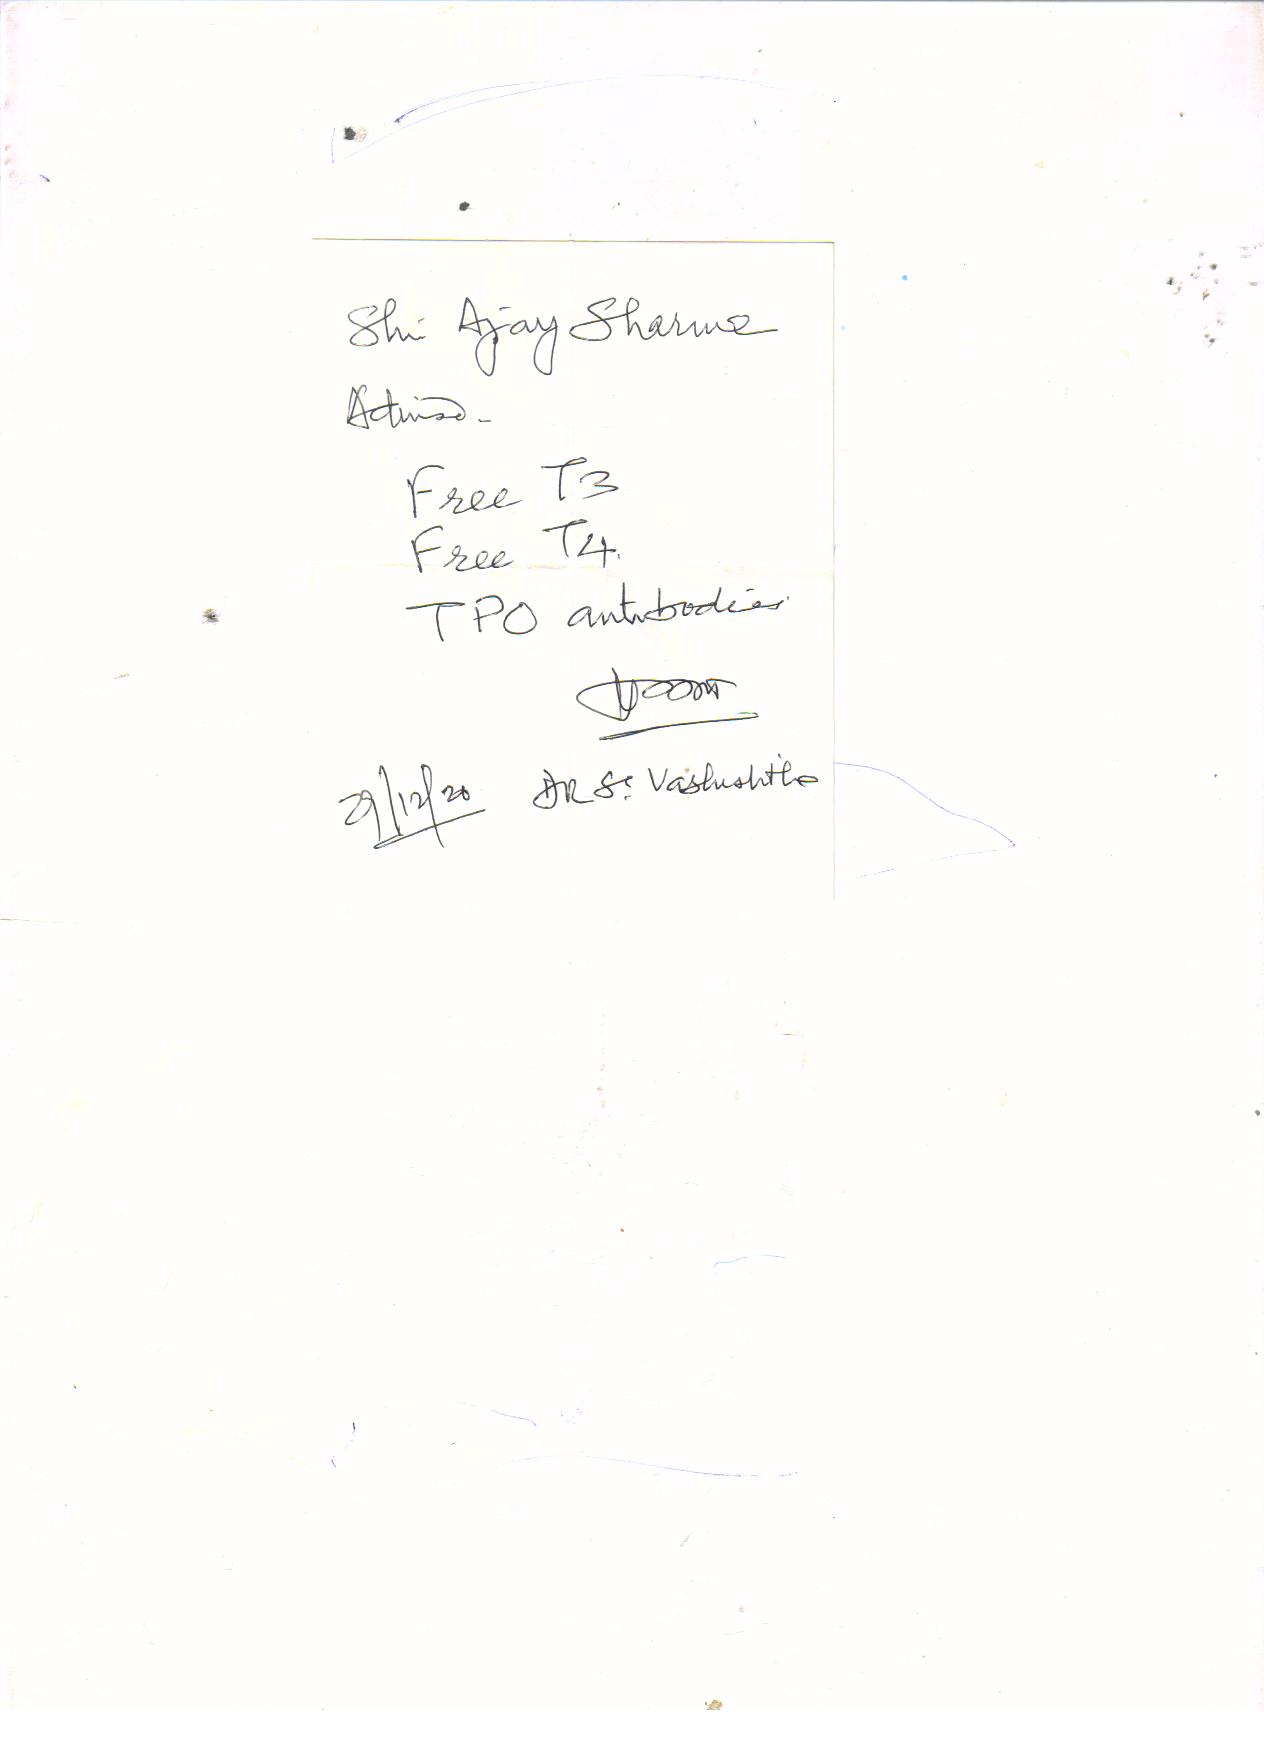 Shri Ajay Sharma
Advised -
Free T3
Free T4.
TPO antibodies
29/12/20 DR S. Vashishtha